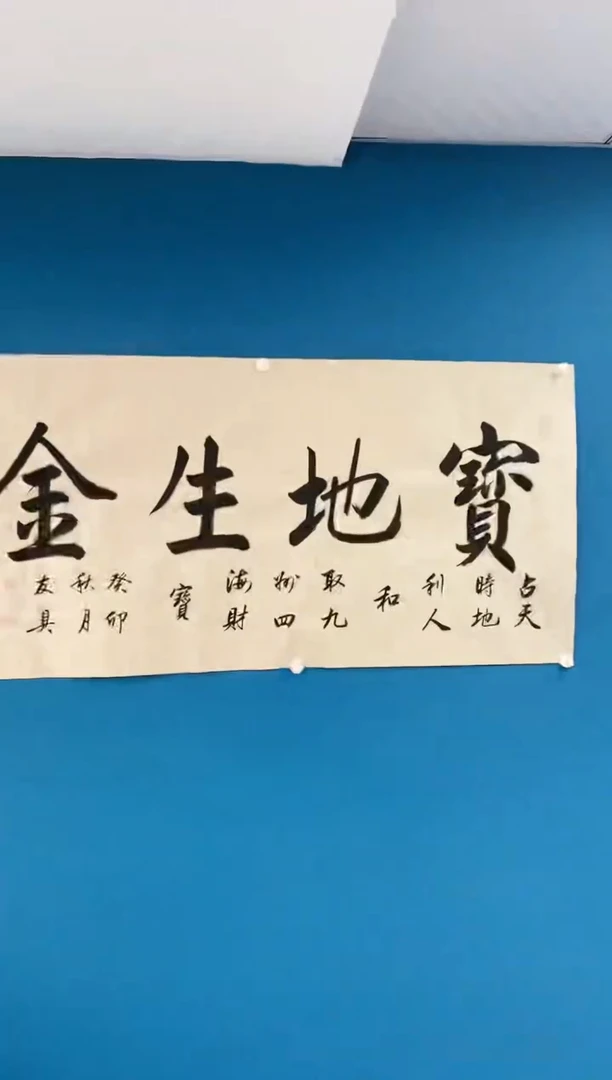 寶地生金
占天
時地
利人
和
取九
州四
海財
寶
癸卯
秋月
友具